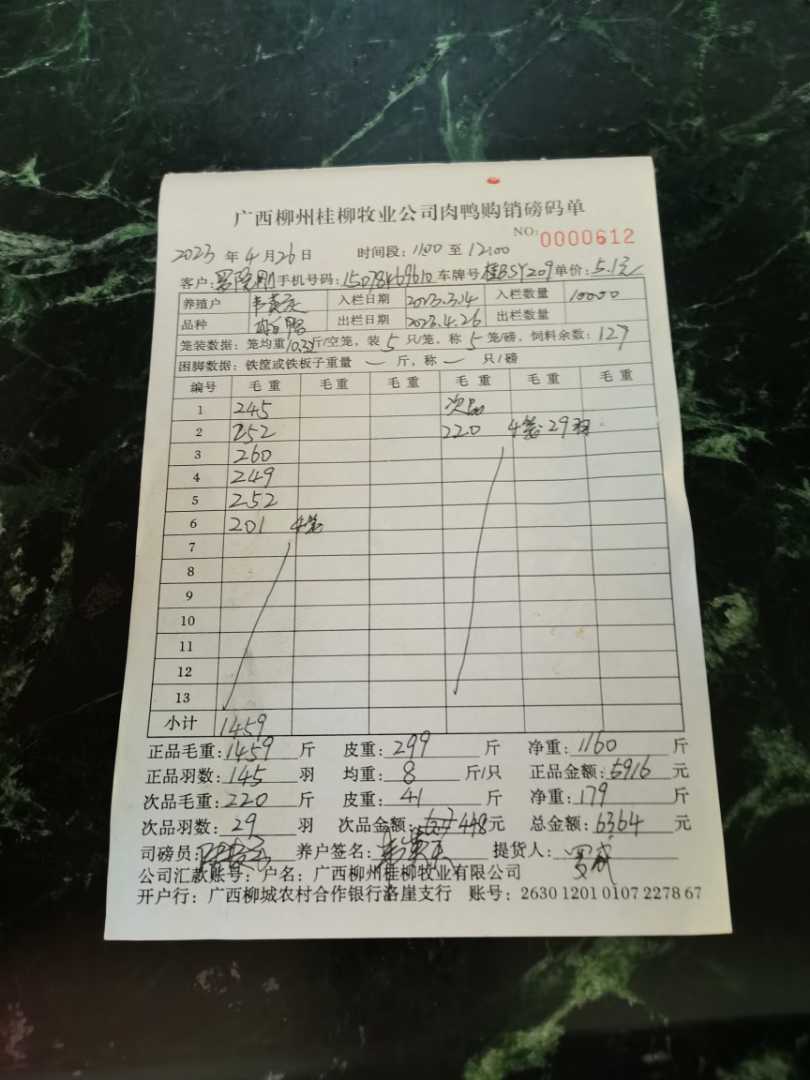 广西柳州桂柳牧业公司肉鸭购销磅码单
NO: 0000612
2023 年 4 月 26 日 时间段: 11:00 至 12:00
客户: 手机号码: 15078469610 车牌号 桂BSY209 单价: 5.1元
养殖户 入栏日期 2023.3.14 入栏数量 10000
品种 出栏日期 2023.4.26 出栏数量
笼装数据: 笼均重 10.3 斤/空笼, 装 5 只/笼, 称 5 笼/磅, 饲料余数: 127
困脚数据: 铁筐或铁板子重量 — 斤, 称 — 只/磅
编号 毛重 毛重 毛重 毛重 毛重 毛重
1 245 次品
2 252 220 4笼 29羽
3 260
4 249
5 252
6 201 4笼
7
8
9
10
11
12
13
小计 1459
正品毛重: 1459 斤 皮重: 299 斤 净重: 1160 斤
正品羽数: 145 羽 均重: 8 斤/只 正品金额: 5916 元
次品毛重: 220 斤 皮重: 41 斤 净重: 179 斤
次品羽数: 29 羽 次品金额: 448 元 总金额: 6364 元
司磅员: 养户签名: 提货人: 罗成
公司汇款账号: 户名: 广西柳州桂柳牧业有限公司
开户行: 广西柳城农村合作银行洛崖支行 账号: 2630 1201 0107 2278 67